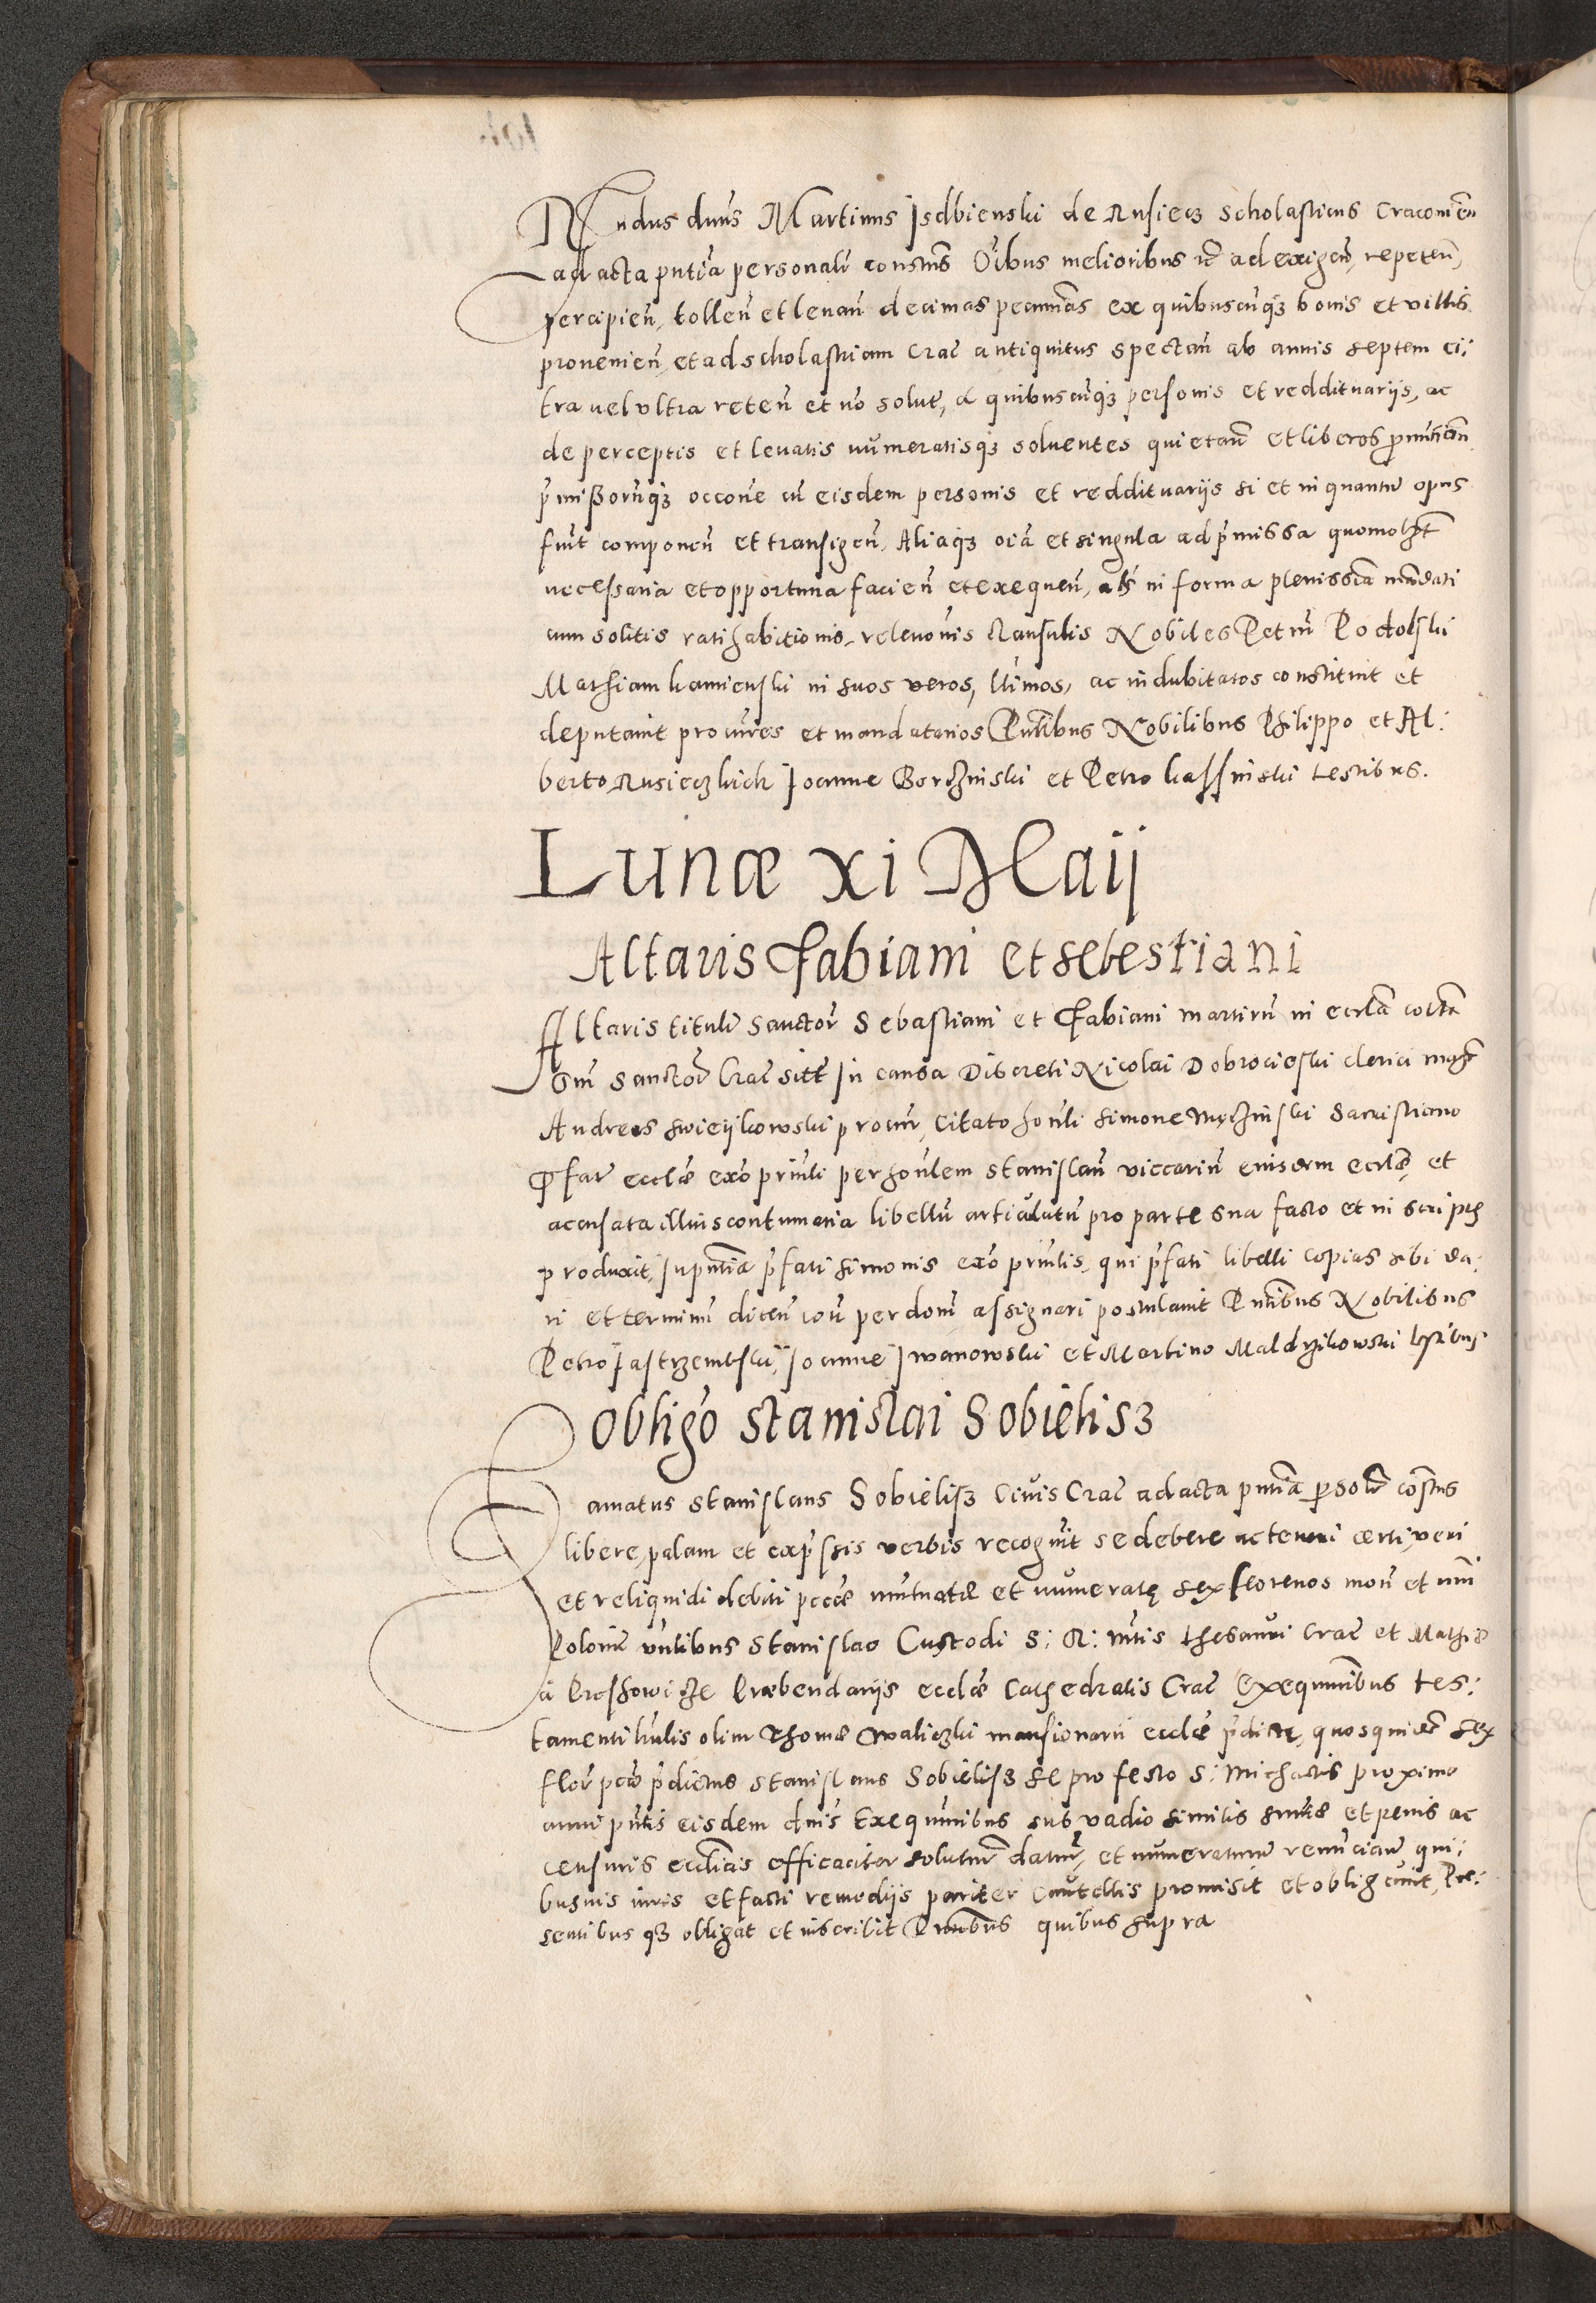 Rndus dnus Martinus Isdbienski de Rusiecz scholasticus Cracouien̄
ad acta pn̄tia personalr̄ constitūs Oībus melioribus ꝛc̄ ad exigen̄, repeten̄,
percipien̄, tollen̄ et leuan̄ decimas pecuniās ex quibuscūq3 bonis et villis
prouenien̄, et ad scholastriam Crac̄ antiquitus spectan̄ ab annis septem ci:
tra uel vltra reten̄ et nō solut̄, a quibuscūq3 personis et reddituarijs, ac
de perceptis et leuatis nūmeratisq3 soluentes quietan̄ et liberos pronūcian̄
p̄missorūq3 occōne cū eisdem personis et reddituarijs si et in quantū opus
fuīt componen̄ et transigen̄. Aliaq3 oīa et singula ad p̄missa quomolt̄
necessaria et opportuna facien̄ et exequen̄, als̄ in forma plenissīa mandati
cum solitis ratihabitionis, releuōnis Clausulis Nobiles Petrū Podolski
Mathiam kamienski in suos veros, lt̄imos, ac indubitatos constituit et
deputauit procūres et mandatarios Pn̄tibus Nobilibus Philippo et Al:
berto Rusieczkich Joanne Borzinski et Petro kassinski testibus.
Lunæ xi Maij
Altaris Fabiani et sebestiani
Altaris tituli Sanctor̄ Sebastiani et Fabiani martirū in eccl̄ia coll̄ta
Om̄ Sanctor̄ Crac̄ sitt̄ In causa Discreti Nicolai Dobrocieski clerici mgr̄
Andreas swieijkowski procūr, Citato honli simone sacristiano
P̄fat̄ eccl̄æ exō prīnli per honlem stanislaū viccariū eiusdem eccl̄æ, et
accusata illius contumatia libellū articulatū pro parte sua facto et in scriptis
produxit, In pn̄tia p̄fati simonis exō prīnlis, qui p̄fati libelli copias sibi da:
ri et terminū dicen̄ con̄ per dom̄ assignari postulauit Pn̄tibus Nobilibus
Petro Jastrzembski, Joanne Jwanowski et Martino Maldrzikowski tstibus
Obligō Stanislai Sobielisz
Famatus Stanislaus Sobielisz Ciuis Crac̄ ad acta pn̄tia p̄solr̄ cōstūs
libere, palam et exp̄ssis verbis recognuīt se debere ac teneri certi, veri
et reliquidi debiti pecc̄æ mutuatæ et numeratę sex florenos mon̄ et nrī
Poloniē vnlibus Stanislao Custodi S: R: mtis thesauri Crac̄ et Mathiæ
à Proshowicze Præbendarijs eccl̄æ Cathedralis Crac̄ Exequutribus tes:
tamenti hnlis olim Thomæ mansionarij eccl̄æ p̄dictę, quosquidē sex
flor̄ pc̄uo p̄dictus stanislaus Sobielisz se pro festo S: Michaelis proximo
anni pn̄tis eisdem dnis Exequūribus sub vadio similis sum̄æ et penis ac
censuris eccl̄iasticis efficaciter soluturū daturū, et numeraturū renūcian̄ qui:
busuis iuris et facti remedijs pariter Cautellis promisit et obligauit, Præ:
sentibus q3 obligat et inscribit Pn̄tibus quibus supra